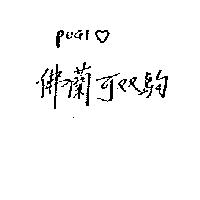 PUGI♡
佛蘭可双駒